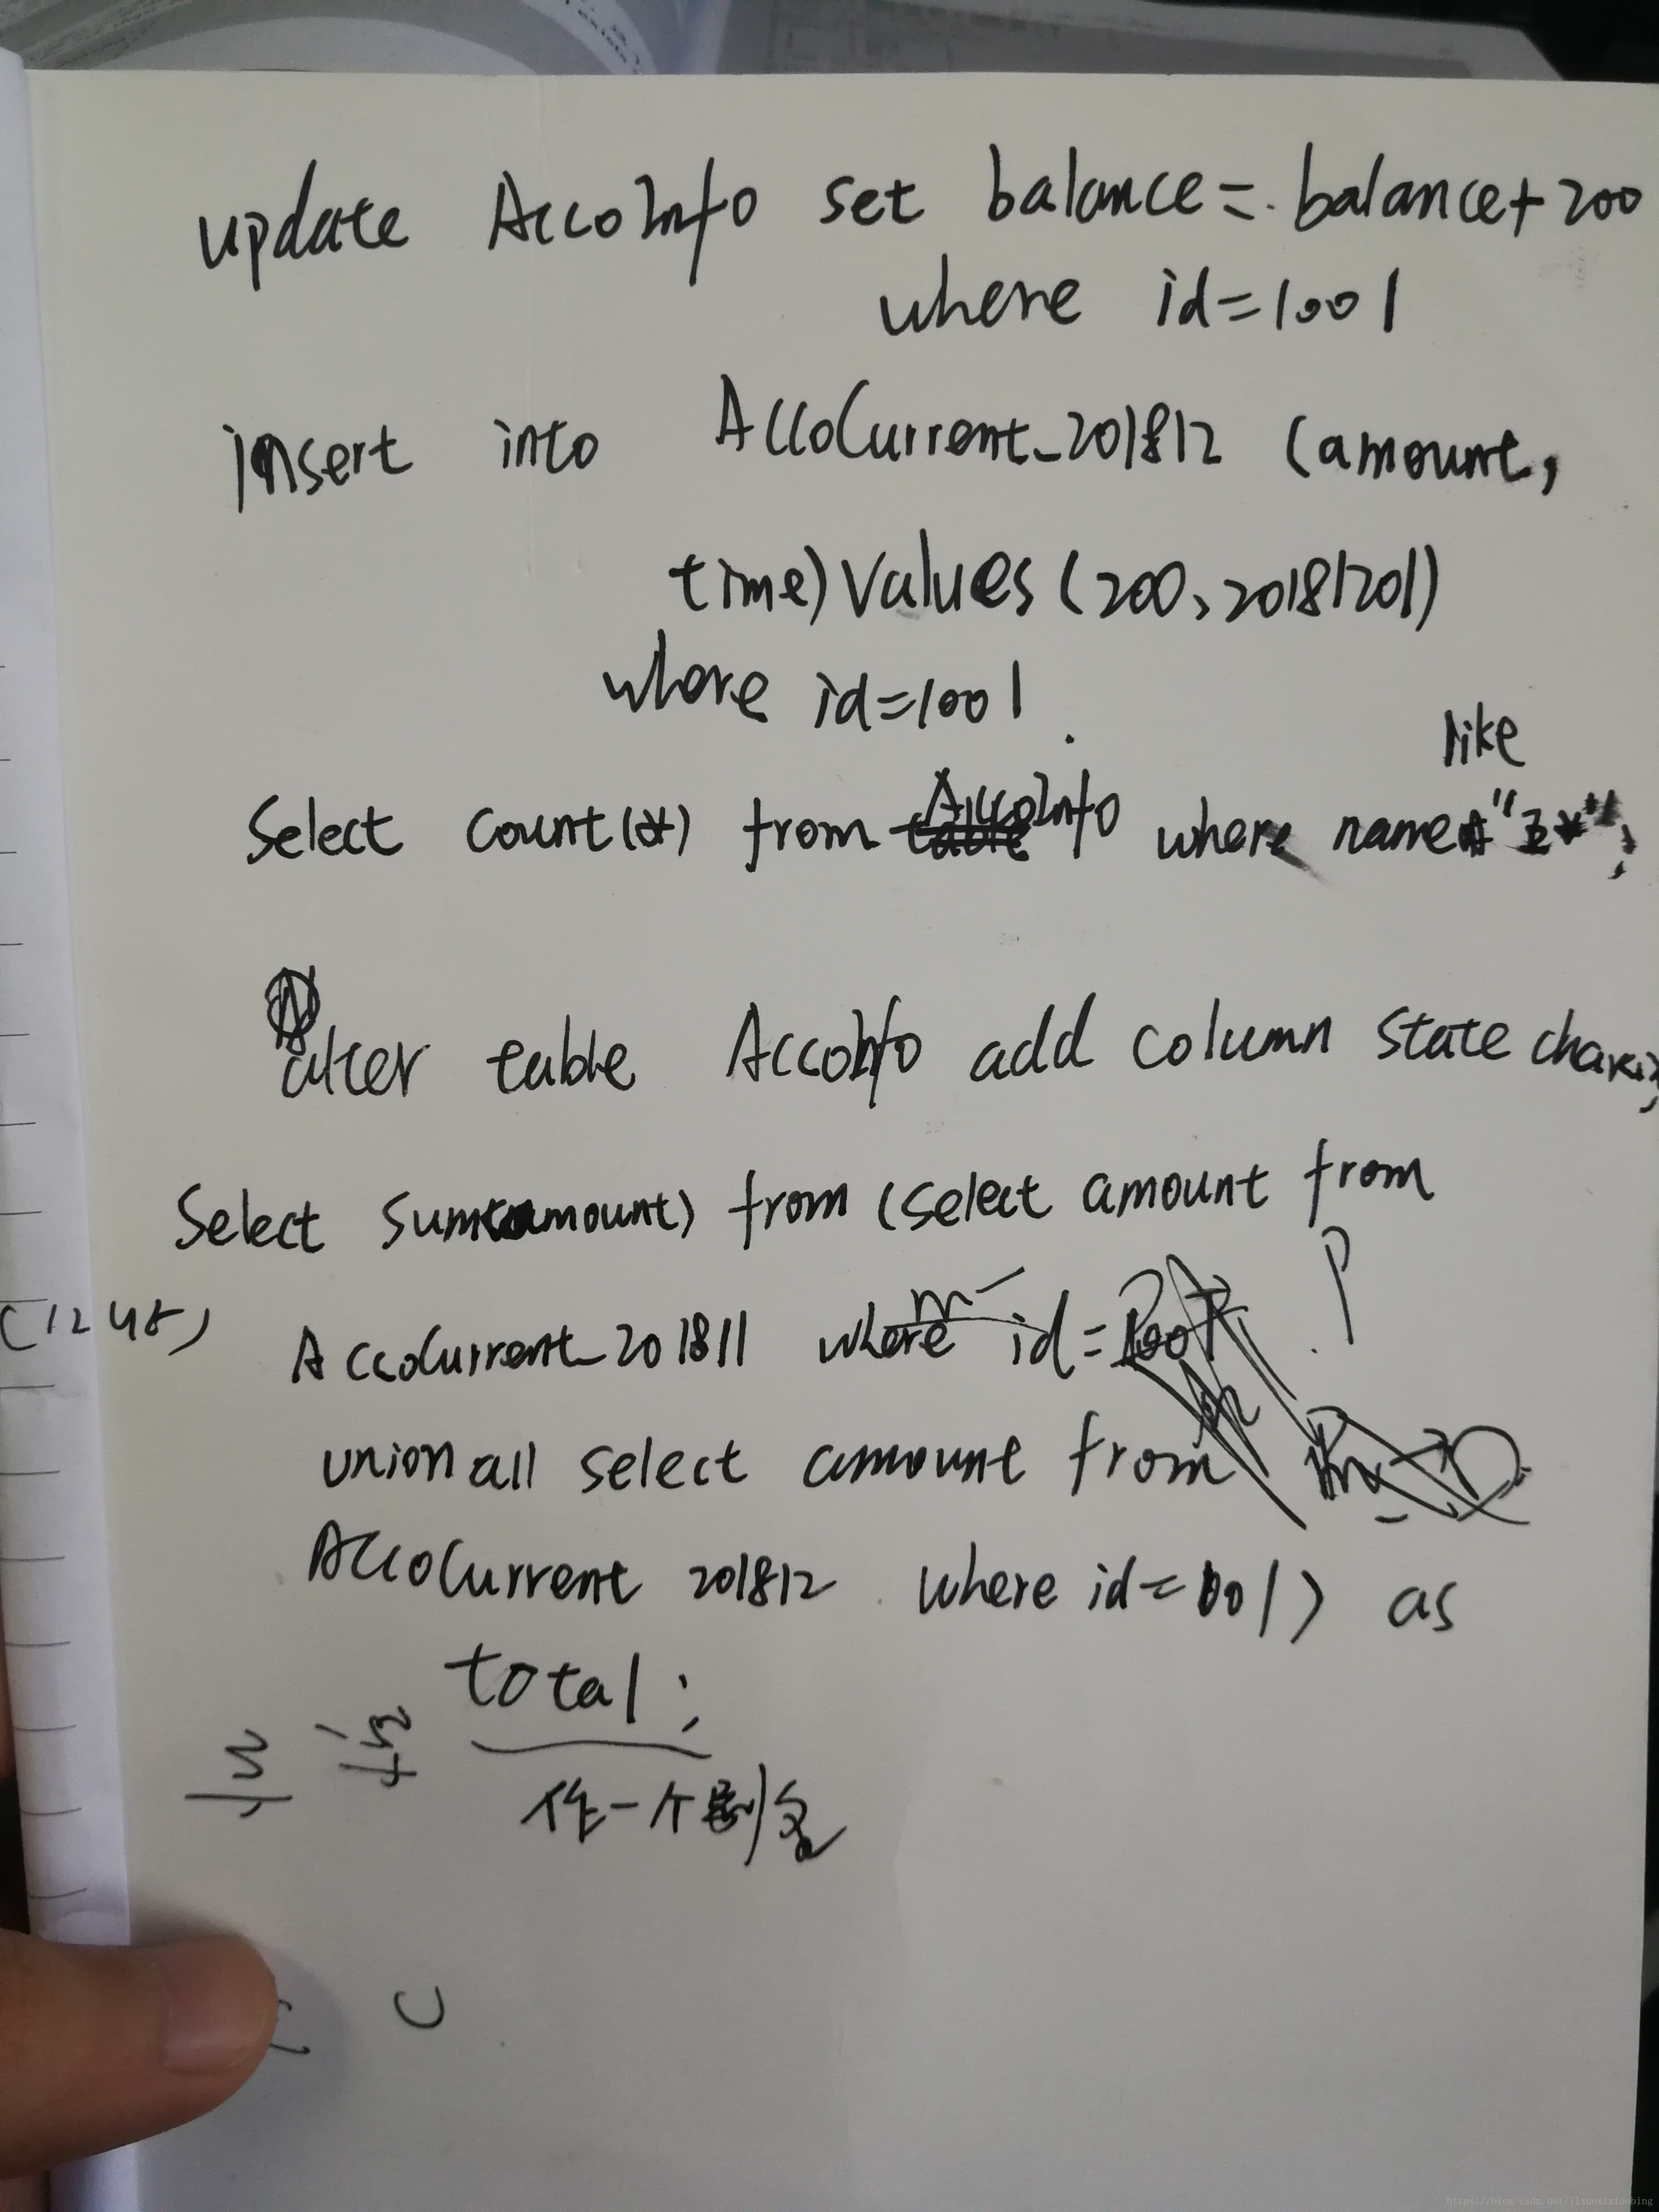 update AccoInfo set balance = balance + 200
where id=1001
insert into AccoCurrent_201812 (amount,
time) values (200, 20181201)
where id=1001
like
Select count(*) from AccoInfo where name "王*";
alter table AccoInfo add column state char
Select sum(amount) from (select amount from
AccoCurrent_201811 where id=1001
union all select amount from
AccoCurrent 201812 where id=1001) as
total;
作一个别名
C
https://blog.csdn.net/llxuexixianbing